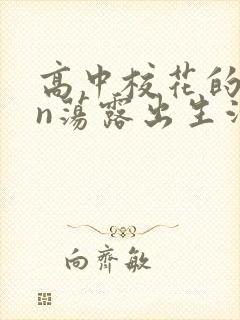 高中校花的
n荡露出生活
向齐敏